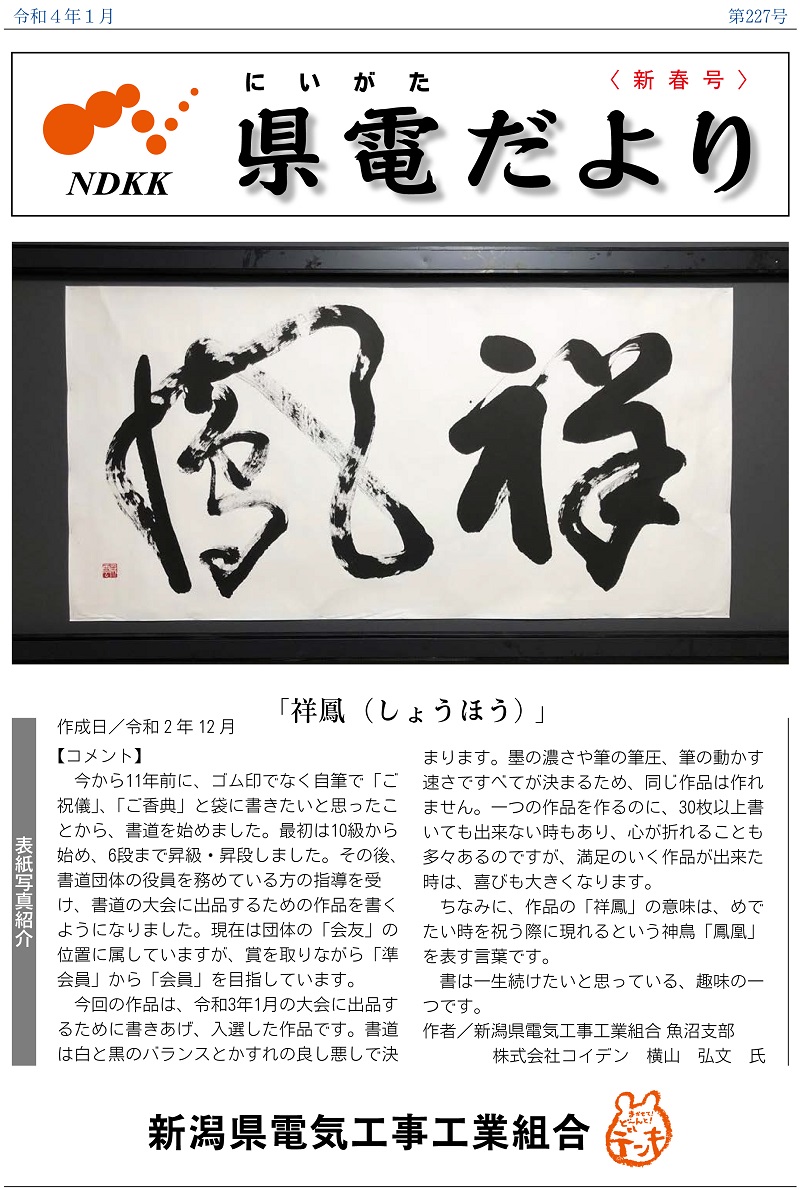 令和４年１月
第227号
にいがた
〈新春号〉
県電だより
NDKK
祥鳳
「祥鳳（しょうほう）」
作成日／令和２年12月
表紙写真紹介
【コメント】
　今から11年前に、ゴム印でなく自筆で「ご
祝儀」、「ご香典」と袋に書きたいと思ったこ
とから、書道を始めました。最初は10級から
始め、6段まで昇級・昇段しました。その後、
書道団体の役員を務めている方の指導を受
け、書道の大会に出品するための作品を書く
ようになりました。現在は団体の「会友」の
位置に属していますが、賞を取りながら「準
会員」から「会員」を目指しています。
　今回の作品は、令和3年1月の大会に出品す
るために書きあげ、入選した作品です。書道
は白と黒のバランスとかすれの良し悪しで決
まります。墨の濃さや筆の筆圧、筆の動かす
速さですべてが決まるため、同じ作品は作れ
ません。一つの作品を作るのに、30枚以上書
いても出来ない時もあり、心が折れることも
多々あるのですが、満足のいく作品が出来た
時は、喜びも大きくなります。
　ちなみに、作品の「祥鳳」の意味は、めで
たい時を祝う際に現れるという神鳥「鳳凰」
を表す言葉です。
　書は一生続けたいと思っている、趣味の一
つです。
作者／新潟県電気工事工業組合 魚沼支部
株式会社コイデン　横山　弘文　氏
新潟県電気工事工業組合
まかせて!
どーんと!
デンキ